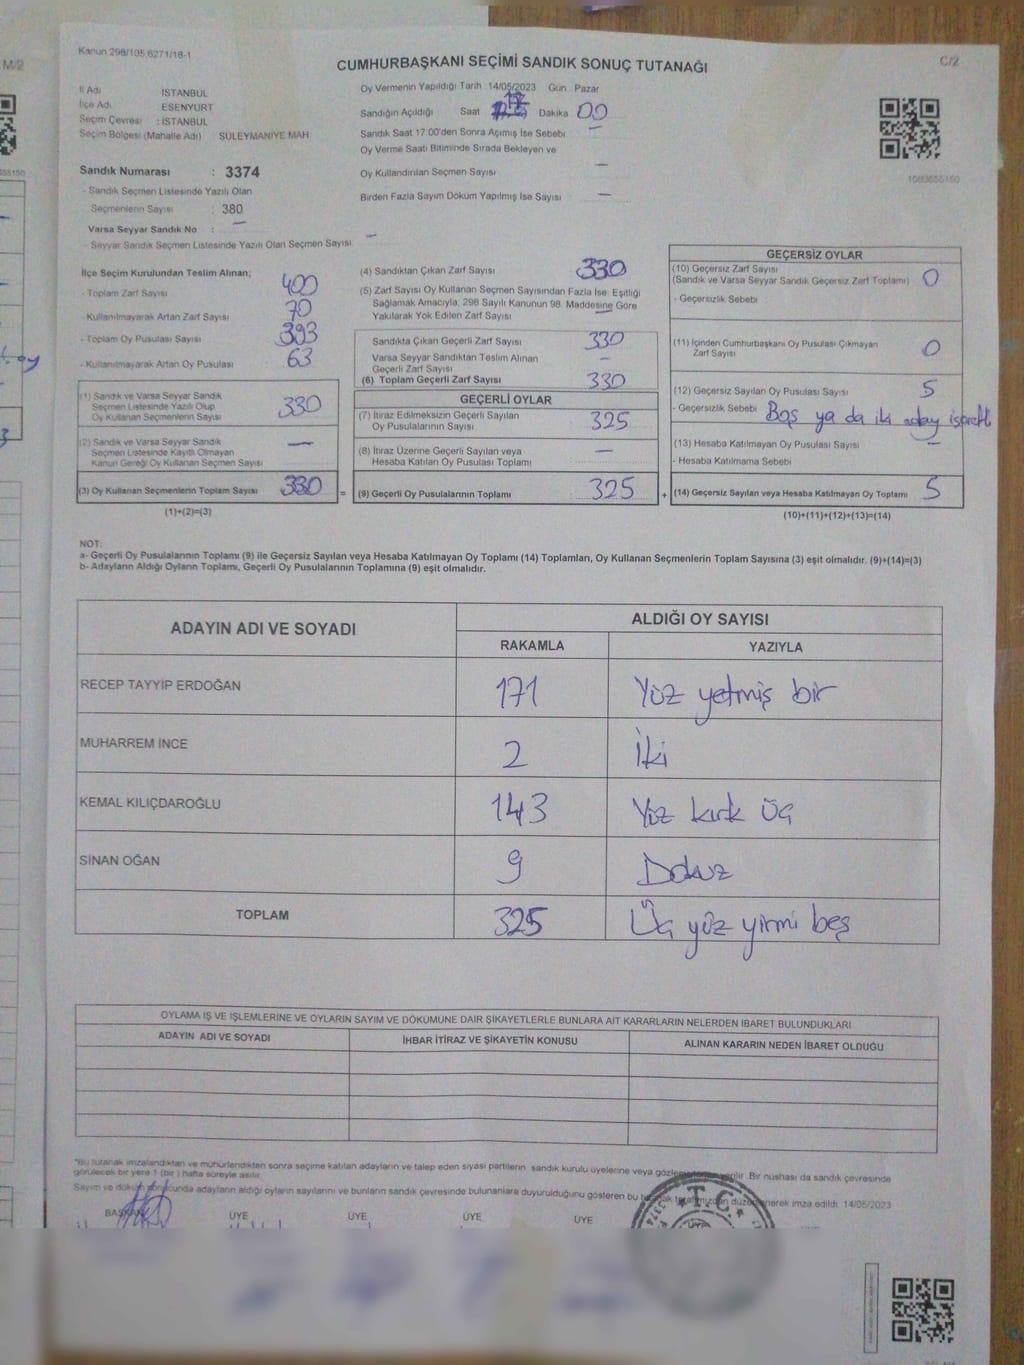 Kanun 298/105,6271/18-1
C/2
M/2
CUMHURBAŞKANI SEÇİMİ SANDIK SONUÇ TUTANAĞI
İl Adı İSTANBUL
İlçe Adı ESENYURT
Seçim Çevresi : İSTANBUL
Seçim Bölgesi (Mahalle Adı) : SÜLEYMANİYE MAH
Sandık Numarası : 3374
- Sandık Seçmen Listesinde Yazılı Olan
Seçmenlerin Sayısı : 380
Varsa Seyyar Sandık No : —
- Seyyar Sandık Seçmen Listesinde Yazılı Olan Seçmen Sayısı: —
Oy Vermenin Yapıldığı Tarih :14/05/2023 Gün : Pazar
Sandığın Açıldığı Saat 17 Dakika 00
Sandık Saat 17:00'den Sonra Açımış İse Sebebi —
Oy Verme Saati Bitiminde Sırada Bekleyen ve
Oy Kullandırılan Seçmen Sayısı —
Birden Fazla Sayım Döküm Yapılmış İse Sayısı —
1083655150
İlçe Seçim Kurulundan Teslim Alınan;
- Toplam Zarf Sayısı 400
- Kullanılmayarak Artan Zarf Sayısı 70
- Toplam Oy Pusulası Sayısı 393
- Kullanılmayarak Artan Oy Pusulası 63
(1) Sandık ve Varsa Seyyar Sandık
Seçmen Listesinde Yazılı Olup
Oy Kullanan Seçmenlerin Sayısı 330
(2) Sandık ve Varsa Seyyar Sandık
Seçmen Listesinde Kayıtlı Olmayan
Kanun Gereği Oy Kullanan Seçmen Sayısı —
(3) Oy Kullanan Seçmenlerin Toplam Sayısı 330 =
(1)+(2)=(3)
(4) Sandıktan Çıkan Zarf Sayısı 330
(5) Zarf Sayısı Oy Kullanan Seçmen Sayısından Fazla İse, Eşitliği
Sağlamak Amacıyla; 298 Sayılı Kanunun 98. Maddesine Göre
Yakılarak Yok Edilen Zarf Sayısı —
Sandıkta Çıkan Geçerli Zarf Sayısı 330
Varsa Seyyar Sandıktan Teslim Alınan
Geçerli Zarf Sayısı —
(6) Toplam Geçerli Zarf Sayısı 330
GEÇERLİ OYLAR
(7) İtiraz Edilmeksizin Geçerli Sayılan
Oy Pusulalarının Sayısı 325
(8) İtiraz Üzerine Geçerli Sayılan veya
Hesaba Katılan Oy Pusulası Toplamı —
(9) Geçerli Oy Pusulalarının Toplamı 325 +
GEÇERSİZ OYLAR
(10) Geçersiz Zarf Sayısı
(Sandık ve Varsa Seyyar Sandık Geçersiz Zarf Toplamı) 0
- Geçersizlik Sebebi
(11) İçinden Cumhurbaşkanı Oy Pusulası Çıkmayan
Zarf Sayısı 0
(12) Geçersiz Sayılan Oy Pusulası Sayısı 5
- Geçersizlik Sebebi Boş ya da iki aday işaretli
(13) Hesaba Katılmayan Oy Pusulası Sayısı —
- Hesaba Katılmama Sebebi
(14) Geçersiz Sayılan veya Hesaba Katılmayan Oy Toplamı 5
(10)+(11)+(12)+(13)=(14)
NOT:
a- Geçerli Oy Pusulalarının Toplamı (9) ile Geçersiz Sayılan veya Hesaba Katılmayan Oy Toplamı (14) Toplamları, Oy Kullanan Seçmenlerin Toplam Sayısına (3) eşit olmalıdır. (9)+(14)=(3)
b- Adayların Aldığı Oyların Toplamı, Geçerli Oy Pusulalarının Toplamına (9) eşit olmalıdır.
ADAYIN ADI VE SOYADI
ALDIĞI OY SAYISI
RAKAMLA YAZIYLA
RECEP TAYYİP ERDOĞAN 171 Yüz yetmiş bir
MUHARREM İNCE 2 İki
KEMAL KILIÇDAROĞLU 143 Yüz kırk üç
SİNAN OĞAN 9 Dokuz
TOPLAM 325 Üç yüz yirmi beş
OYLAMA İŞ VE İŞLEMLERİNE VE OYLARIN SAYIM VE DÖKÜMÜNE DAİR ŞİKAYETLERLE BUNLARA AİT KARARLARIN NELERDEN İBARET BULUNDUKLARI
ADAYIN ADI VE SOYADI İHBAR İTİRAZ VE ŞİKAYETİN KONUSU ALINAN KARARIN NEDEN İBARET OLDUĞU
*Bu tutanak imzalandıktan ve mühürlendikten sonra seçime katılan adayların ve talep eden siyasi partilerin sandık kurulu üyelerine veya Bir nüshası da sandık çevresinde
görülecek bir yere 1 (bir ) hafta süreyle asılır.
Sayım ve döküm sonucunda adayların aldığı oyların sayılarını ve bunların sandık çevresinde bulunanlara duyurulduğunu gösteren bu imza edildi. 14/05/2023
BAŞKAN ÜYE ÜYE ÜYE ÜYE ÜYE
T.C.